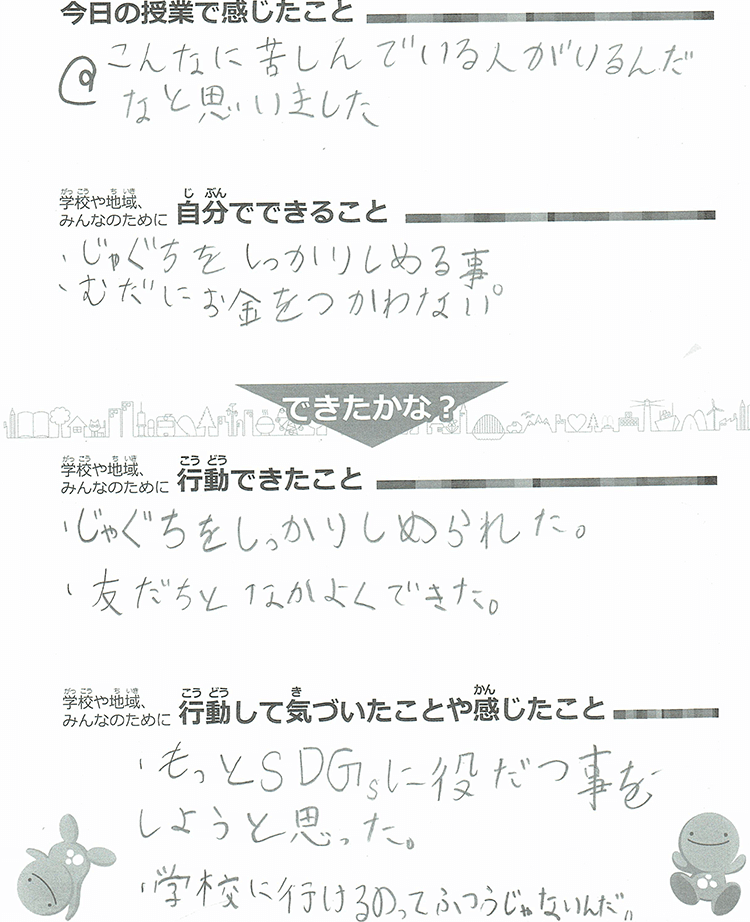 今日の授業で感じたこと
こんなに苦しんでいる人がいるんだ
なと思いました
学校や地域、
みんなのために 自分でできること
・じゃぐちをしっかりしめる事。
・むだにお金をつかわない。
できたかな?
学校や地域、
みんなのために 行動できたこと
・じゃぐちをしっかりしめられた。
・友だちとなかよくできた。
学校や地域、
みんなのために 行動して気づいたことや感じたこと
・もっとSDGsに役だつ事を
しようと思った。
・学校に行けるのってふつうじゃないんだ